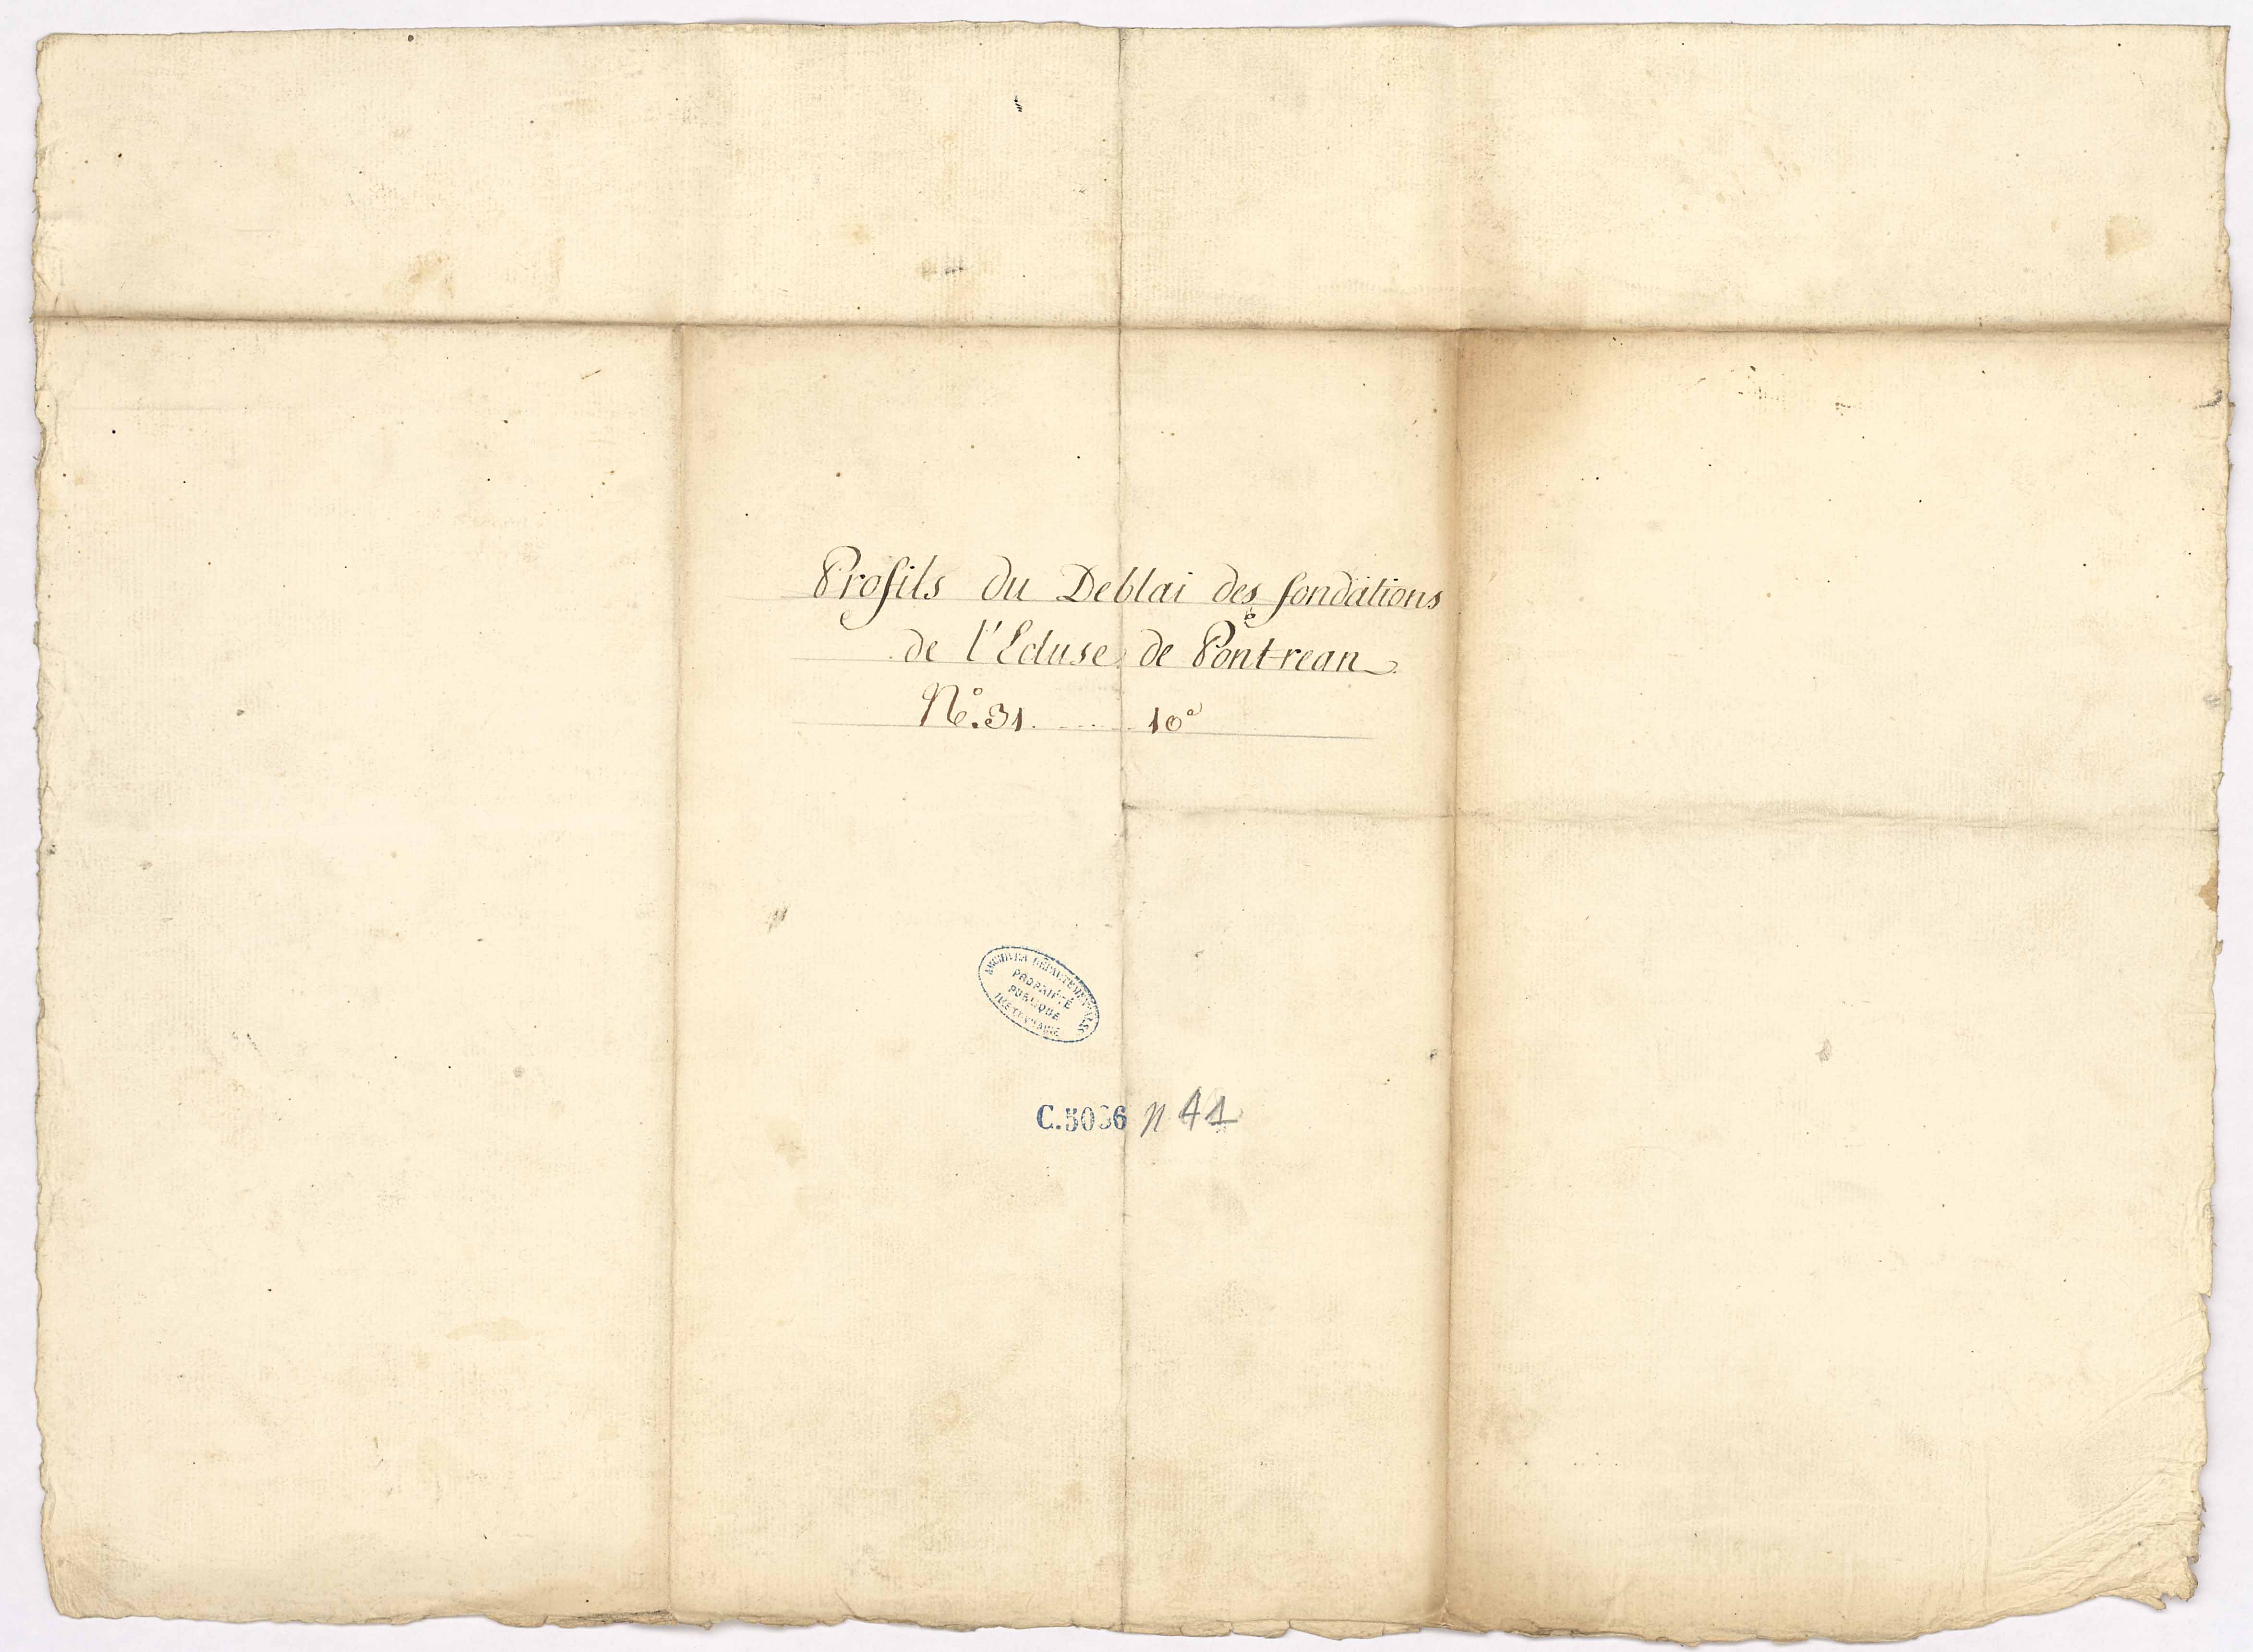 Profils du Deblai des fondations
de l'Ecluse de Pontrean
N.° 31. ....... 10°
ARCHIVES DÉPARTEMENTALES
PROPRIÉTÉ
PUBLIQUE
ILLE-ET-VILAINE
C.5036 n 41